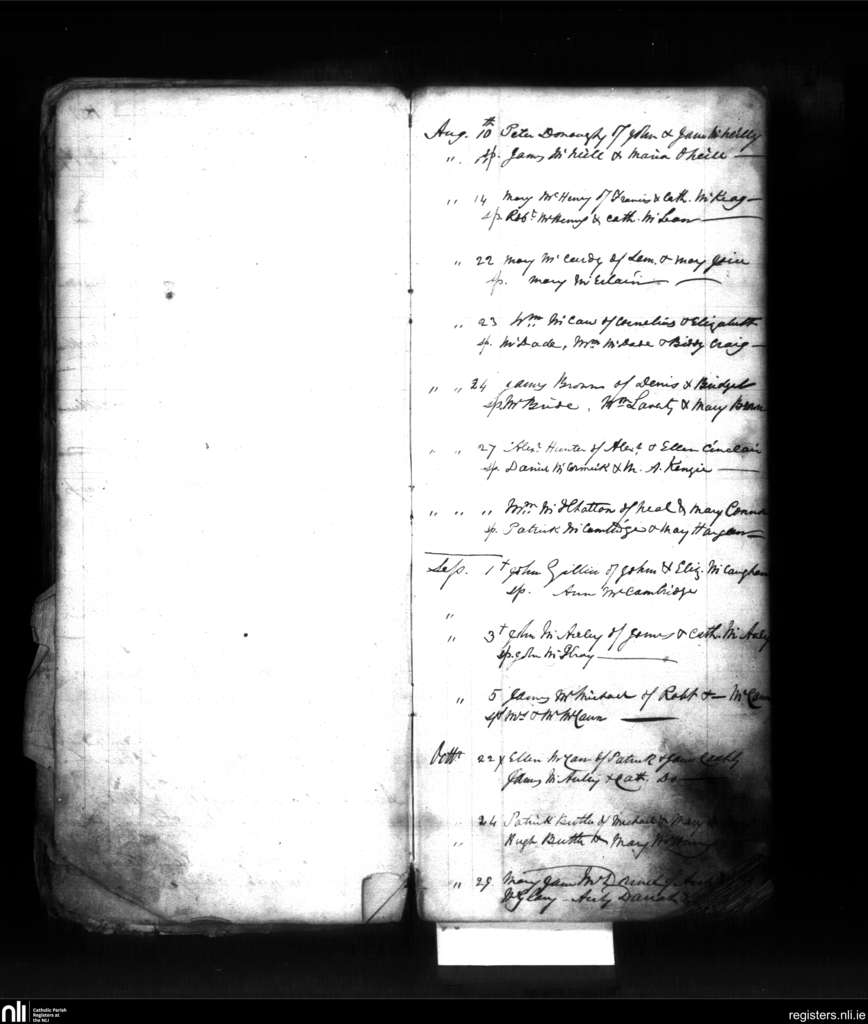 Aug. 10th Peter Donaughy of John & Jane McNeilly
" . sp. James McNeill & Maria O'Neill —
" 14 Mary McHenry of Francis & Cath. McKeag —
sp. Robt McHenry & Cath. McLean —
" 22 Mary McCurdy of Sam. & Mary
sp. Mary McErlain —
" 23 Wm McCaw of Cornelius & Elizabeth
sp. McDade, Wm McDade & Biddy Craig —
" " 24 James Brown of Denis & Bridget
sp McBride, Wm Laverty & Mary Brown
" " 27 Alexr Hunter of Alexr & Ellen Cinclair
sp. Daniel McCormick & M. A. Kenzie —
" " " Wm McIlhatton of Neal & Mary
sp. Patrick McCambridge & Mary —
Sep. 1t John Gillin of John & Eliz. McCaughan
sp. Ann McCambridge
"
" 3t John McAuley of James & Cath. McAuley
sp. John McIlroy —
" 5 James McMichael of Robt & —
sp Mrs & Mr McCann —
Octr 22 Ellen of Patrick & Jane
James McAuley & Cath. Do —
" 24 Patrick Butler of Michael & Mary
" Hugh Butler & Mary
" 29 Mary Jane
nli Catholic Parish
Registers at
the NLI
registers.nli.ie